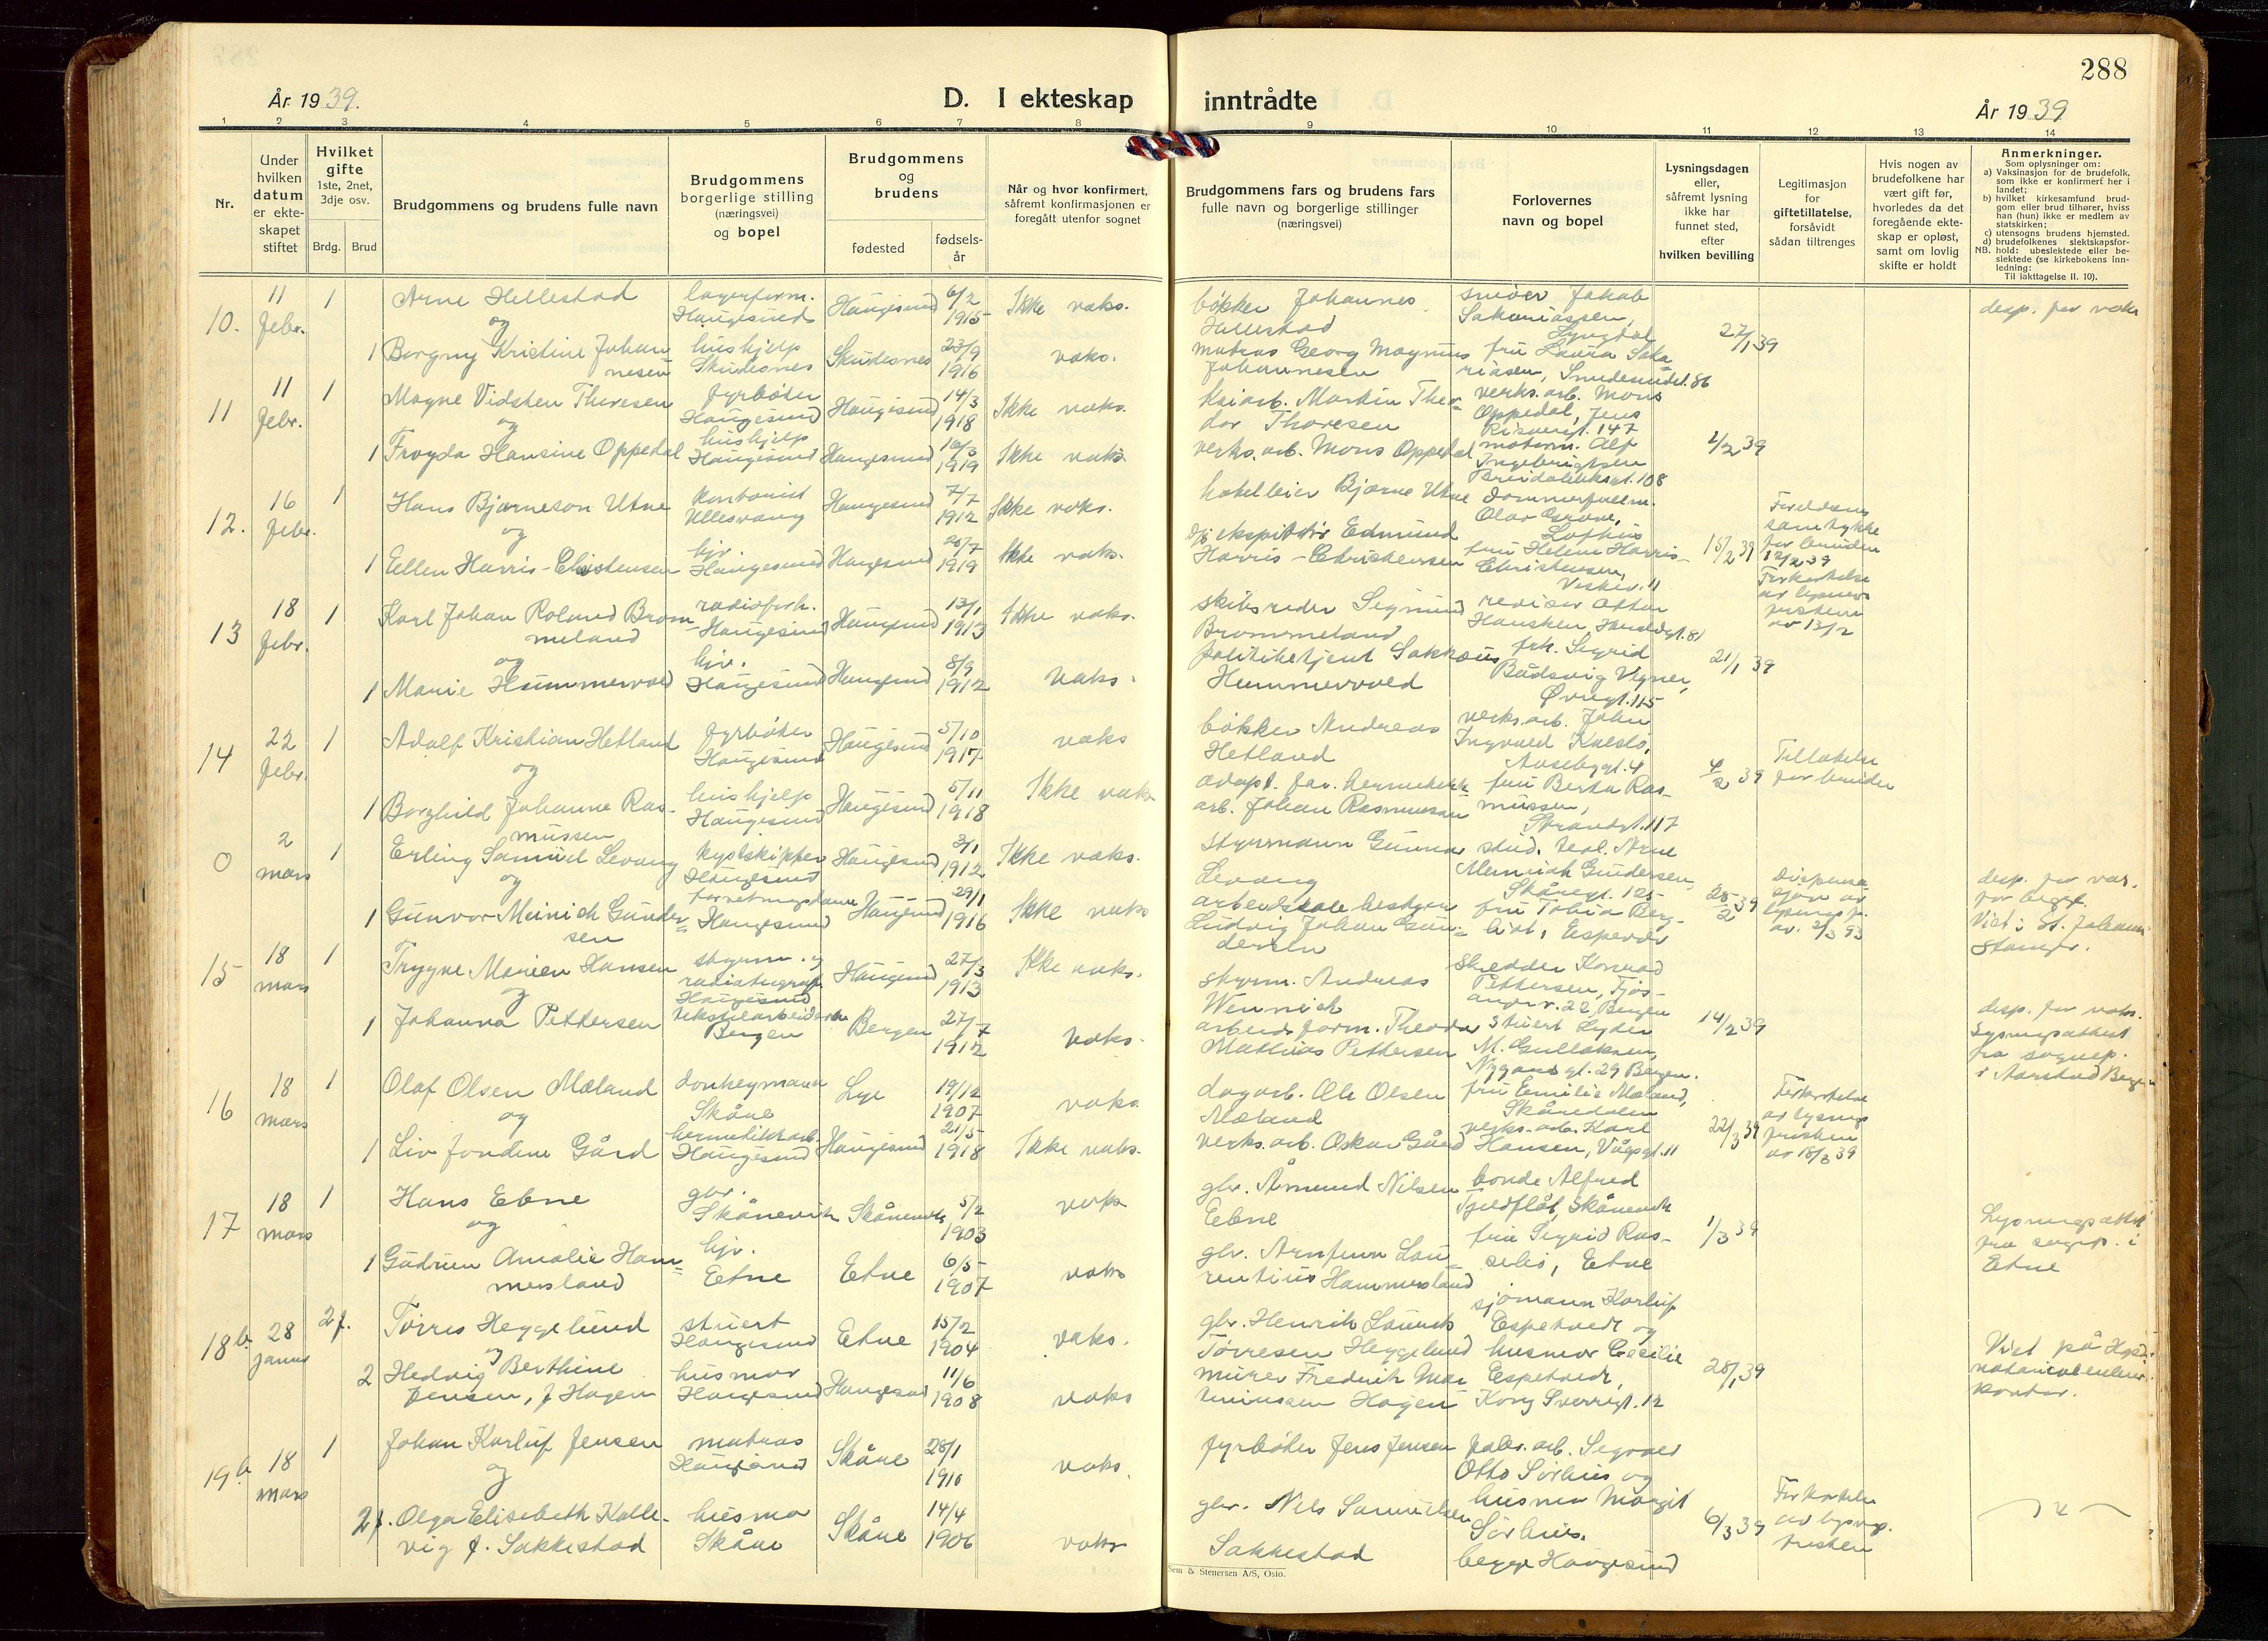 288
År 1939.
D. I ekteskap inntrådte
År 1939
1 2 3 4 5 6 7 8 9 10 11 12 13 14
Nr.
Under hvilken datum er ekteskapet stiftet
Hvilket gifte
1ste, 2net, 3dje osv.
Brdg. Brud
Brudgommens og brudens fulle navn
Brudgommens borgerlige stilling (næringsvei) og bopel
Brudgommens og brudens
fødested
fødsels-år
Når og hvor konfirmert, såfremt konfirmasjonen er foregått utenfor sognet
Brudgommens fars og brudens fars
fulle navn og borgerlige stillinger
(næringsvei)
Forlovernes navn og bopel
Lysningsdagen eller, såfremt lysning ikke har funnet sted, efter hvilken bevilling
Legitimasjon for giftetillatelse, forsåvidt sådan tiltrenges
Hvis nogen av brudefolkene har vært gift før, hvorledes da det foregående ekteskap er opløst, samt om lovlig skifte er holdt
Anmerkninger.
Som oplysninger om:
a) Vaksinasjon for de brudefolk, som ikke er konfirmert her i landet;
b) hvilket kirkesamfund brudgom eller brud tilhører, hviss han (hun) ikke er medlem av statskirken;
c) utensogns brudens hjemsted.
d) brudefolkenes slektskapsforhold: ubeslektede eller beslektede (se kirkebokens innledning:
NB. Til iakttagelse II. 10).
10. 11 febr. 1 Arne Hellestad lagerform. Haugesund Haugesund 6/2 1915 Ikke vaks.
og
1 Borgny Kristine Johannesen hushjelp Skudesnes Skudesnes 23/9 1916 vaks.
bøkker Johannes Hellestad
matros Georg Magnus Johannesen
snører Jakob Sakariassen, Lyngdal
fru Laura Sakariasen, Smedesundet. 86
27/1 39
desp. for vaks
11 11 febr. 1 Magne Vidsten Thoresen fyrbøter Haugesund Haugesund 14/3 1918 Ikke vaks.
og
1 Frøyda Hansine Oppedal hushjelp Haugesund Haugesund 16/3 1919 Ikke vaks
kaiarb. Martin Theodor Thoresen
verks.arb. Mons Oppedal
verks.arb. Mons Oppedal, Jens Risøensgt. 147
motorm. Alf Ingebrigtsen Breidablikgt. 108
2/2 39
12. 16 febr. 1 Hans Bjarneson Utne kontorist Ullesvang Haugesund 7/7 1912 Ikke vaks.
og
1 Ellen Harris-Christensen hjv. Haugesund Haugesund 20/7 1919 Ikke vaks.
hotelleier Bjarne Utne
D/S ekspeditør Edmund Harris-Christensen
dommerfullm. Olav Grove, Lofthus
fru Helene Harris-Christensen, Veskev. 11
15/2 39
Foreldrenes samtykke for bruden 12/2 39
Forkortelse av lysnings fristen av 13/2
13 18 febr. 1 Karl Johan Roland Brommeland radioforh. Haugesund Haugesund 13/1 1913 Ikke vaks.
og
1 Marie Hummervold hjv. Haugesund Haugesund 8/9 1912 vaks.
skibsreder Sigmund Brommeland
politibetjent Sakkæus Hummervold
revisor Ottar Hansken, Haraldsgt. 81
frk. Sigrid Bådsvig Vegner, Øvregt. 115
21/1 39
14 22 febr. 1 Adolf Kristian Hetland fyrbøter Haugesund Haugesund 5/10 1917 vaks
og
1 Borghild Johanne Rasmussen hushjelp Haugesund Haugesund 5/11 1918 Ikke vaks
bøkker Andreas Hetland
adopt. far. hermetikk arb. Johan Rasmussen
verks.arb. John Ingvald Kalstø, Aasebygt. 4
fru Berta Rasmussen, Strandgt. 117
4/2 39
Tillatelse for bruden
0 2 mars 1 Erling Samuel Levang kystskipper Haugesund Haugesund 3/1 1912 Ikke vaks.
og
1 Gunvor Meinich Gundersen forretningsdame Haugesund Haugesund 29/1 1916 Ikke vaks
styrmann Gunnar Levang
Ludvig Johan Gundersen
stud. teol. Arne Meinich Gundersen, Skåregt. 125
fru Tobia Berg-
25/2 39
desp. for vac. for begge.
Viet i St. Johannes
Stavngr.
15 18 mars 1 Trygve Monien Hansen styrm. og radiotelegraf. Haugesund Haugesund 27/3 1913 Ikke vaks.
og
1 Johanna Pettersen tekstilarbeiderske Bergen Bergen 27/7 1912 vaks.
styrm. Andreas Wennich
arbeidsform. Theodor Mathias Pettersen
skredder Konrad Pettersen, Fjøsangerv. 22, Bergen
stuert Lyder M. Gullaksen, Nygårdsgt. 29 Bergen.
14/2 39
desp. for vaks.
Lysningsattest fra sognep. i Aarstad Bergen
16 18 mars 1 Olaf Olsen Mæland donkeymann Skåre Lye 19/12 1907 vaks
og
1 Liv Jondine Gård hermetikkarb. Haugesund Haugesund 21/5 1918 Ikke vaks.
dagarb. Ole Olsen Mæland
verks.arb. Oskar Gård
fru Emilie Mæland, Skåredalen
verks.arb. Karl Hansen, Vågsgt. 11
22/3 39
Forkortelse av lysnings fristen av 18/3 39
17 18 mars 1 Hans Ebne gbr. Skånevik Skånevik 5/2 1903 vaks
og
1 Gudrun Amalie Hammersland hjv. Etne Etne 6/5 1907 vaks
gbr. Åmund Nilsen Ebne
gbr. Arnfinn Laurentius Hammersland
bonde Alfred Tjelflåt, Skånevik
fru Sigrid Rasseløs, Etne
1/3 39
Lysningsattest fra sognep. i Etne
18b. 28 januar 2f. Tørres Heggelund stuert Haugesund Etne 15/2 1904 vaks.
og
2 Hedvig Berthine Jensen, f. Hagen husmor Haugesund Haugesund 11/6 1908 vaks
gbr. Henrik Laurits Tørresen Heggelund
murer Fredrik Martinussen Hagen
sjømann Karluf Espetvedt og
husmor Cecilie Espetvedt, Kong Sverresgt. 12
28/1 39
Viet på Hgsd. notarialembeds kontor.
19b 18 mars 1 Johan Karluf Jensen matros Haugesund Skåre 28/1 1910 vaks.
og
2f. Olga Elisabeth Kallevig f. Sakkestad husmor Skåre Skåre 14/4 1906 vaks
fyrbøter Jens Jensen
gbr. Nils Samuelsen Sakkestad
fabr.arb. Sigvald Otto Sørhus og
husmor Margit Sørhus.
begge Haugesund
6/3 39
Forkortelse av lysngs. fristen
Sem & Stenersen A/S, Oslo.